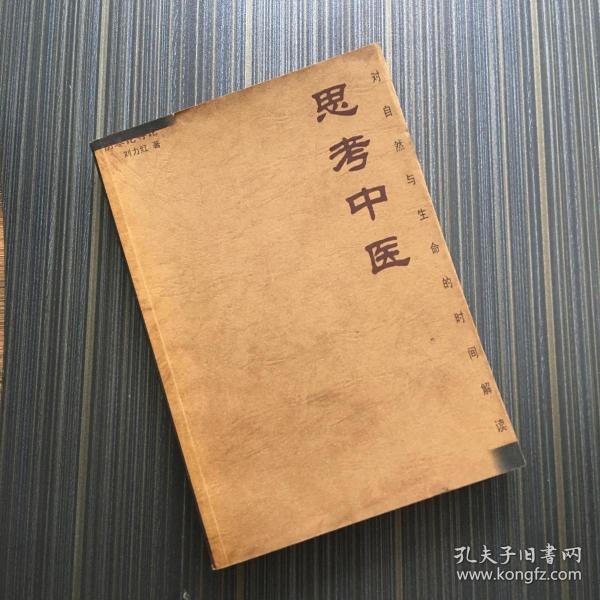 思考中医
对自然与生命的时间解读
刘力红 著
孔夫子旧書网
www.kongfz.com